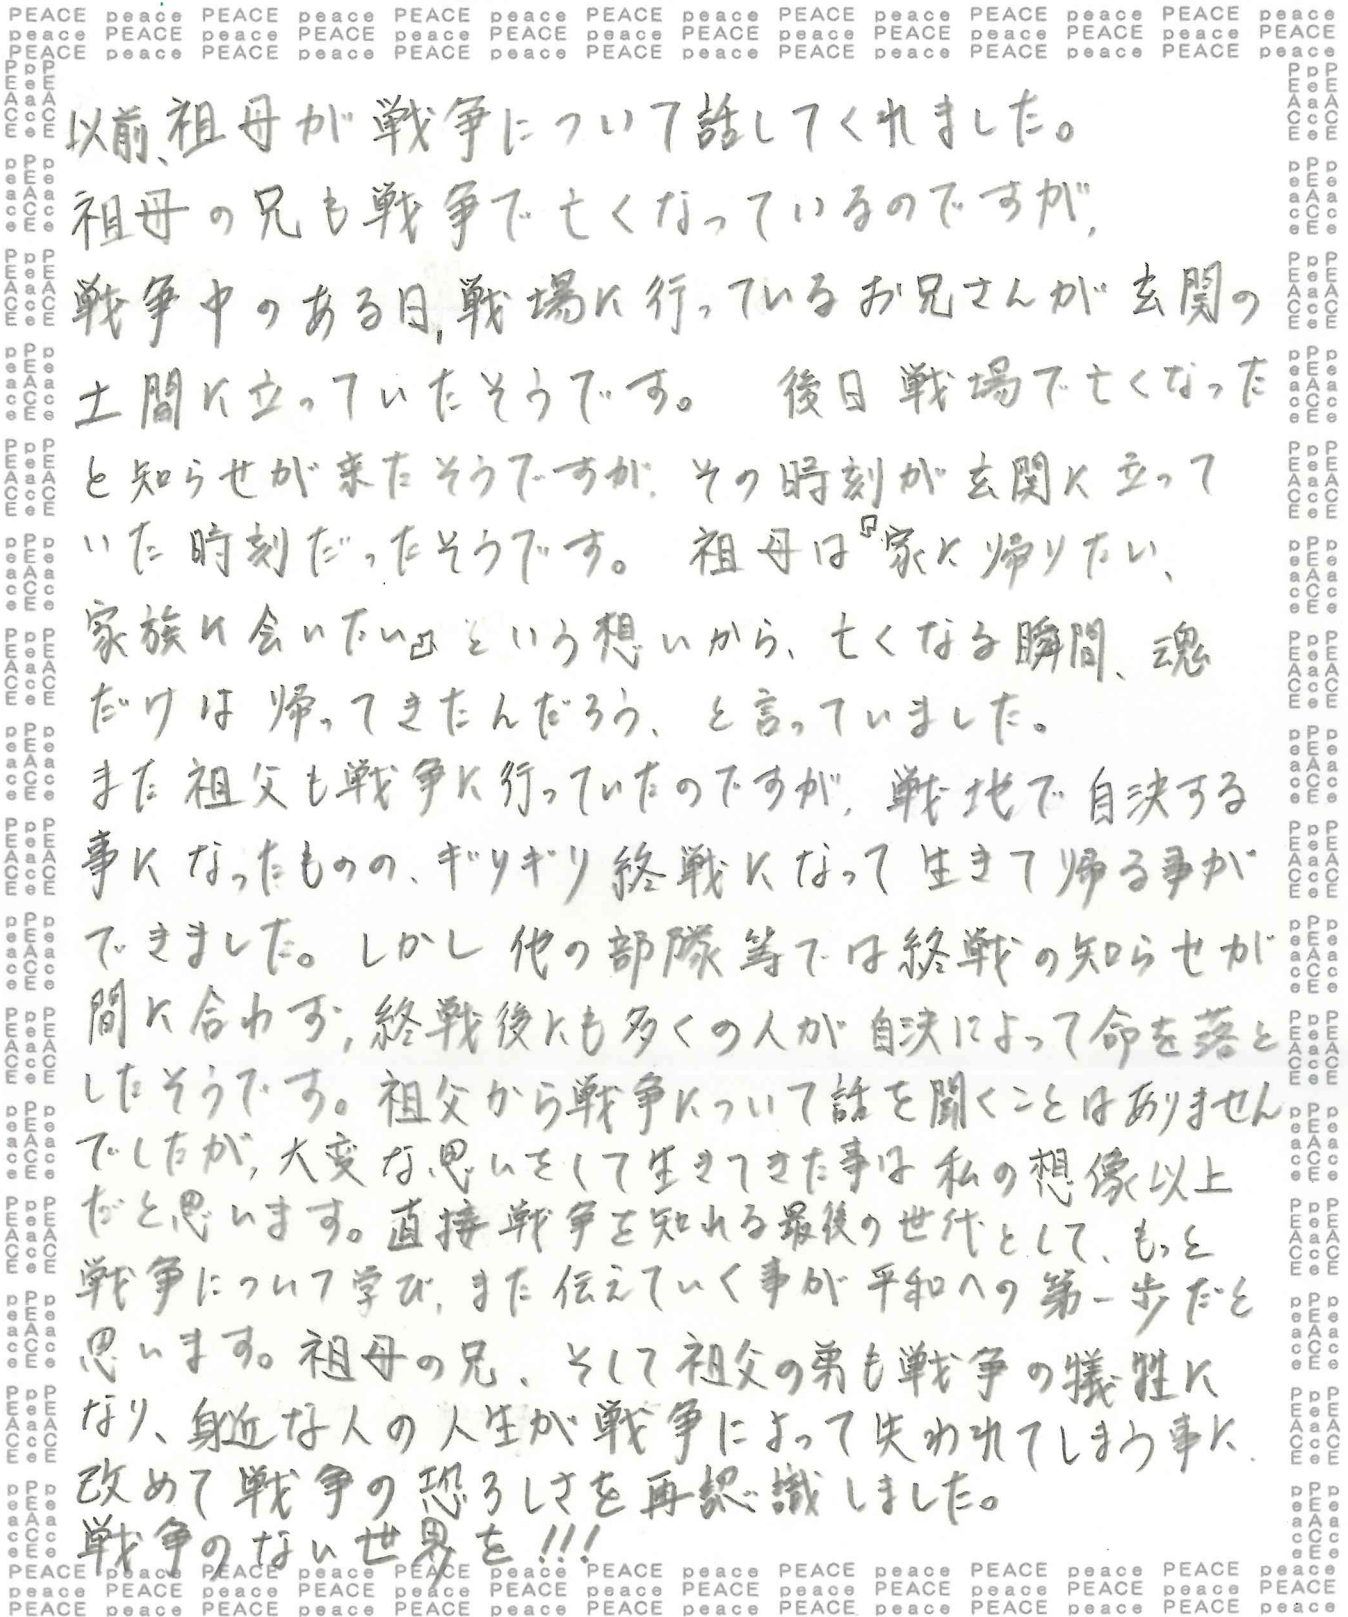 PEACE peace PEACE peace PEACE peace PEACE peace PEACE peace PEACE peace PEACE peace
peace PEACE peace PEACE peace PEACE peace PEACE peace PEACE peace PEACE peace PEACE
PEACE peace PEACE peace PEACE peace PEACE peace PEACE peace PEACE peace PEACE peace
以前、祖母が戦争について話してくれました。
祖母の兄も戦争で亡くなっているのですが、
戦争中のある日、戦場に行っているお兄さんが玄関の
土間に立っていたそうです。 後日戦場で亡くなった
と知らせが来たそうですが、その時刻が玄関に立って
いた時刻だったそうです。 祖母は『家に帰りたい、
家族に会いたい』という想いから、亡くなる瞬間、魂
だけは帰ってきたんだろう、と言っていました。
また祖父も戦争に行っていたのですが、戦地で自決する
事になったものの、ギリギリ終戦になって生きて帰る事が
できました。しかし他の部隊等では終戦の知らせが
間に合わず、終戦後にも多くの人が自決によって命を落と
したそうです。祖父から戦争について話を聞くことはありません
でしたが、大変な思いをして生きてきた事は私の想像以上
だと思います。直接戦争を知れる最後の世代として、もっと
戦争について学び、また伝えていく事が平和への第一歩だと
思います。祖母の兄、そして祖父の弟も戦争の犠牲に
なり、身近な人の人生が戦争によって失われてしまう事に
改めて戦争の恐ろしさを再認識しました。
戦争のない世界を!!!
PEACE peace PEACE peace PEACE peace PEACE peace PEACE peace PEACE peace PEACE peace
peace PEACE peace PEACE peace PEACE peace PEACE peace PEACE peace PEACE peace PEACE
PEACE peace PEACE peace PEACE peace PEACE peace PEACE peace PEACE peace PEACE peace